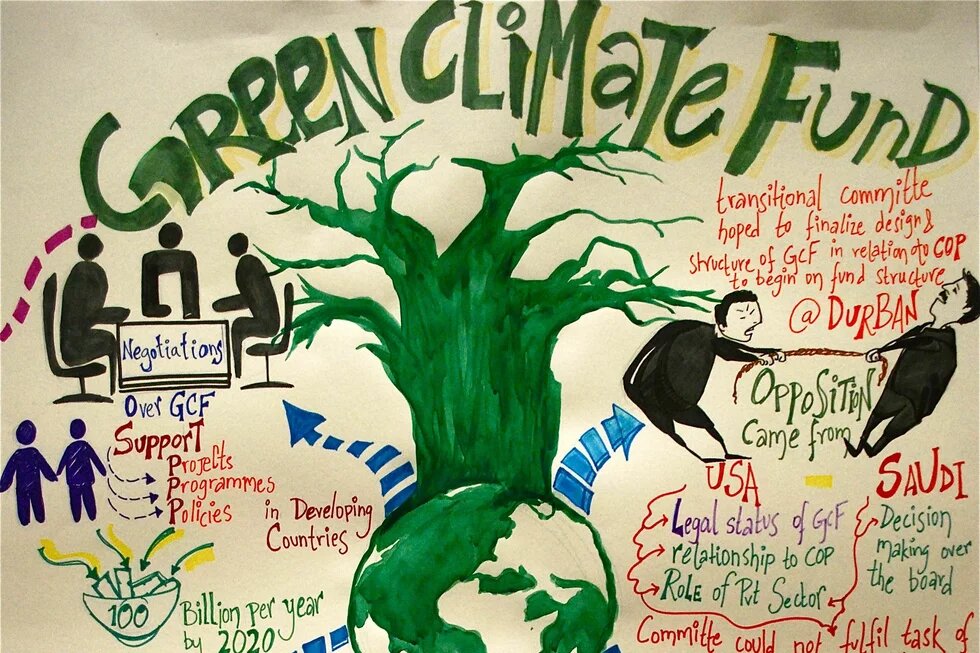 GREEN CLiMaTE FUnD
transitional committe
hoped to finalize design &
structure of GCF in relation to COP
to begin on fund structure
@ DURBAN
Negotiations
Over GCF
Support
Projects
Programmes
Policies
in Developing
Countries
100
Billion per year
by 2020
OPPOSiTiON
Came from
USA
Legal status of GCF
relationship to COP
Role of Pvt Sector
SAUDI
Decision
making over
the board
Committe could not fulfil task of